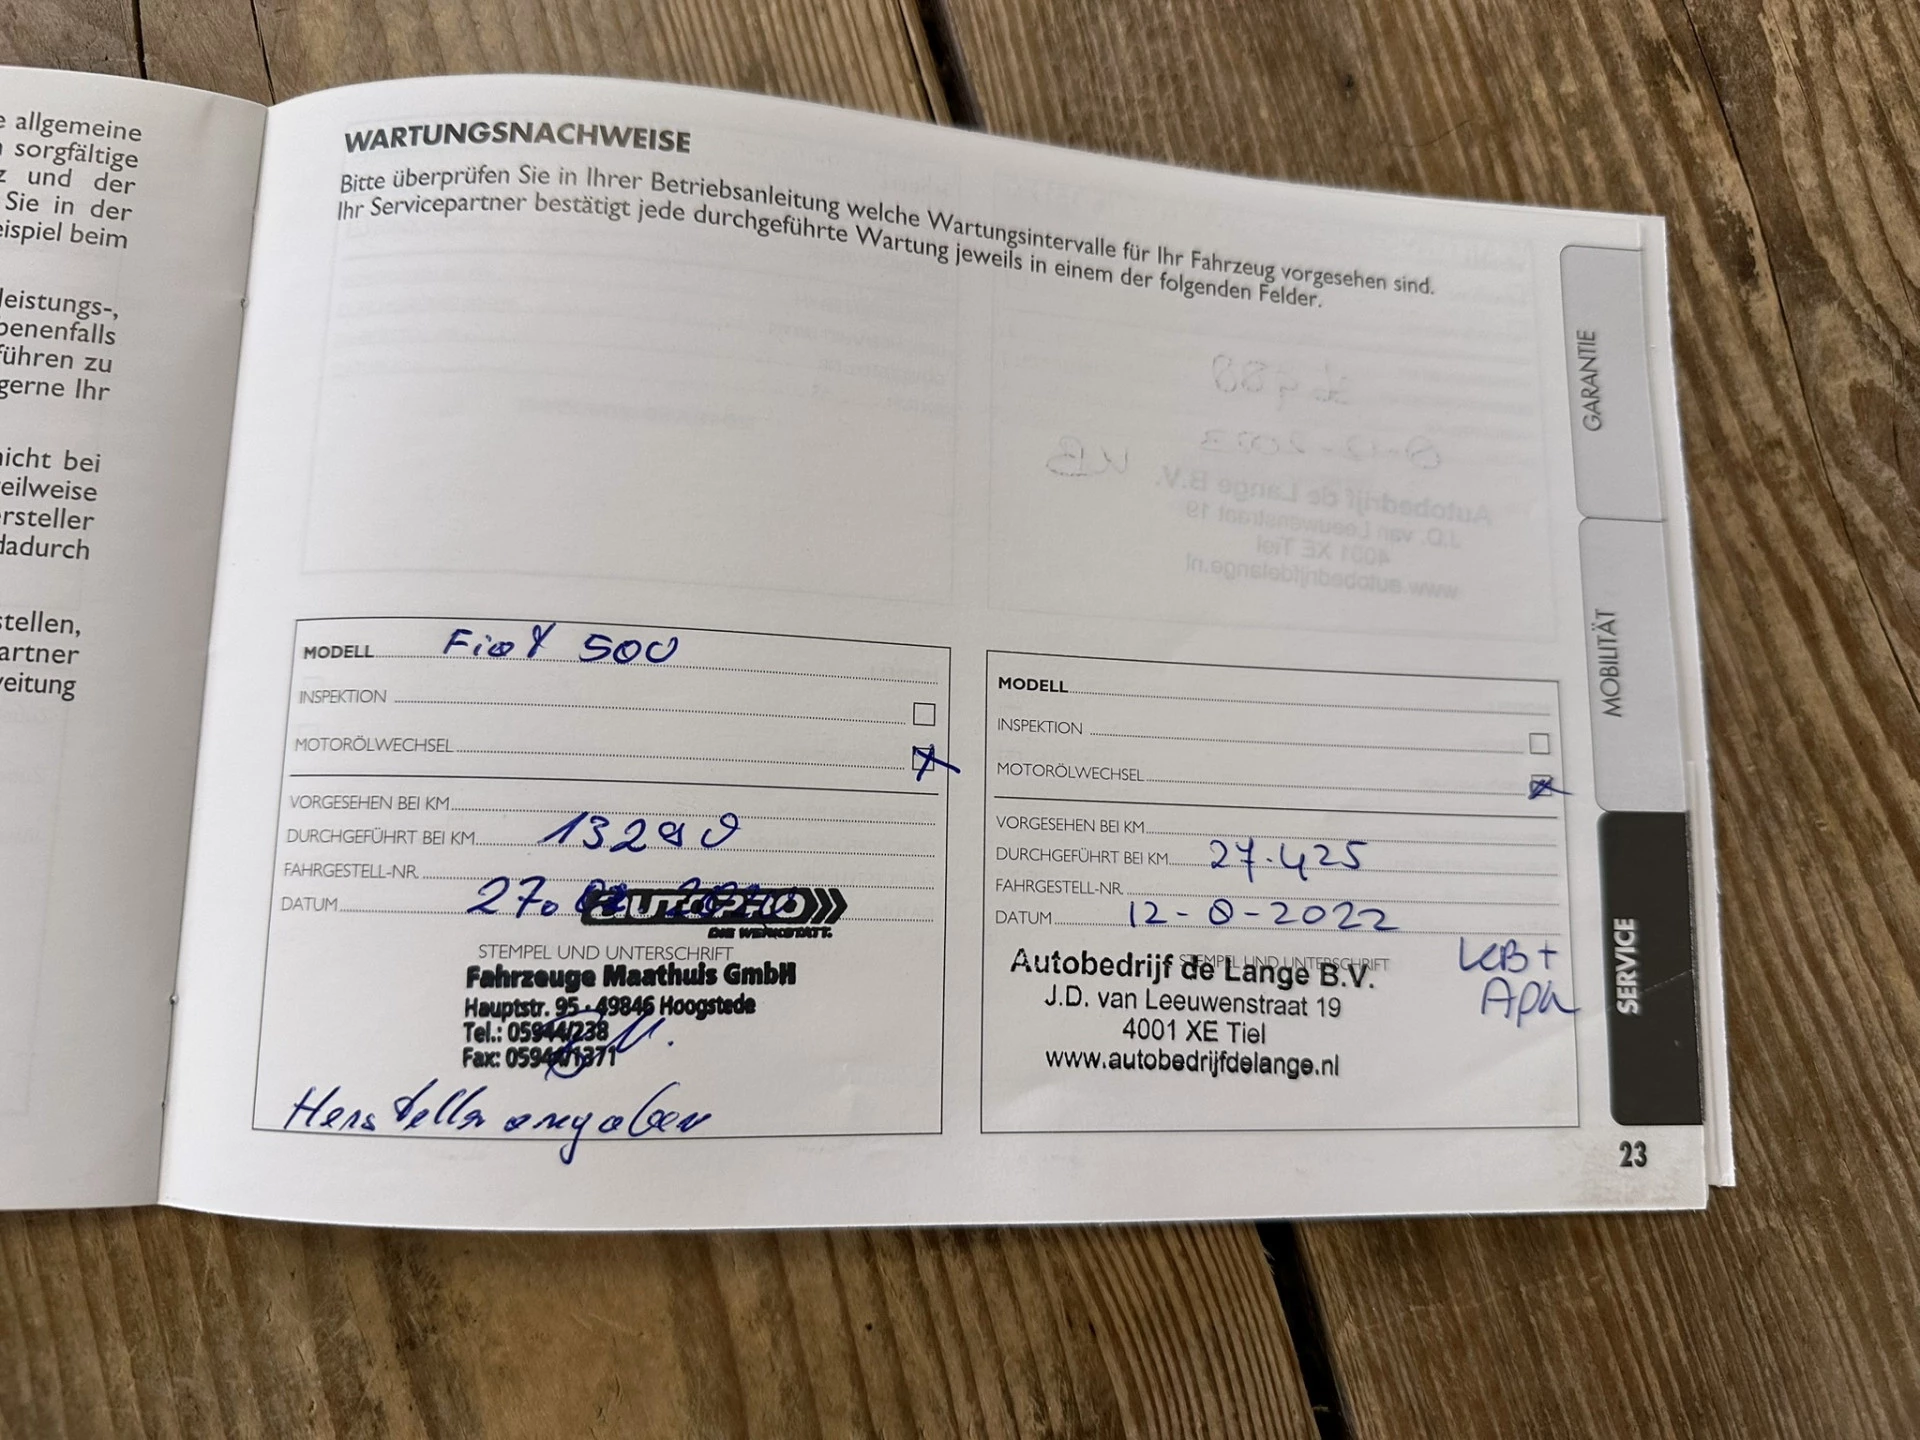 e allgemeine
sorgfältige
z und der
Sie in der
eispiel beim
leistungs-,
benenfalls
führen zu
gerne Ihr
nicht bei
eilweise
ersteller
dadurch
stellen,
artner
veitung
WARTUNGSNACHWEISE
Bitte überprüfen Sie in Ihrer Betriebsanleitung welche Wartungsintervalle für Ihr Fahrzeug vorgesehen sind.
Ihr Servicepartner bestätigt jede durchgeführte Wartung jeweils in einem der folgenden Felder.
MODELL Fiat 500
INSPEKTION
MOTORÖLWECHSEL
VORGESEHEN BEI KM
DURCHGEFÜHRT BEI KM 13290
FAHRGESTELL-NR.
DATUM 27.
AUTOPRO
DIE WERKSTATT.
STEMPEL UND UNTERSCHRIFT
Fahrzeuge Maathuis GmbH
Hauptstr. 95 · 49846 Hoogstede
Tel.: 05944/238
Fax: 05944/1371
Herstellerangaben
MODELL
INSPEKTION
MOTORÖLWECHSEL
VORGESEHEN BEI KM
DURCHGEFÜHRT BEI KM 27.425
FAHRGESTELL-NR.
DATUM 12-8-2022
STEMPEL UND UNTERSCHRIFT
Autobedrijf de Lange B.V.
J.D. van Leeuwenstraat 19
4001 XE Tiel
www.autobedrijfdelange.nl
KB+
APK
GARANTIE
MOBILITÄT
SERVICE
23